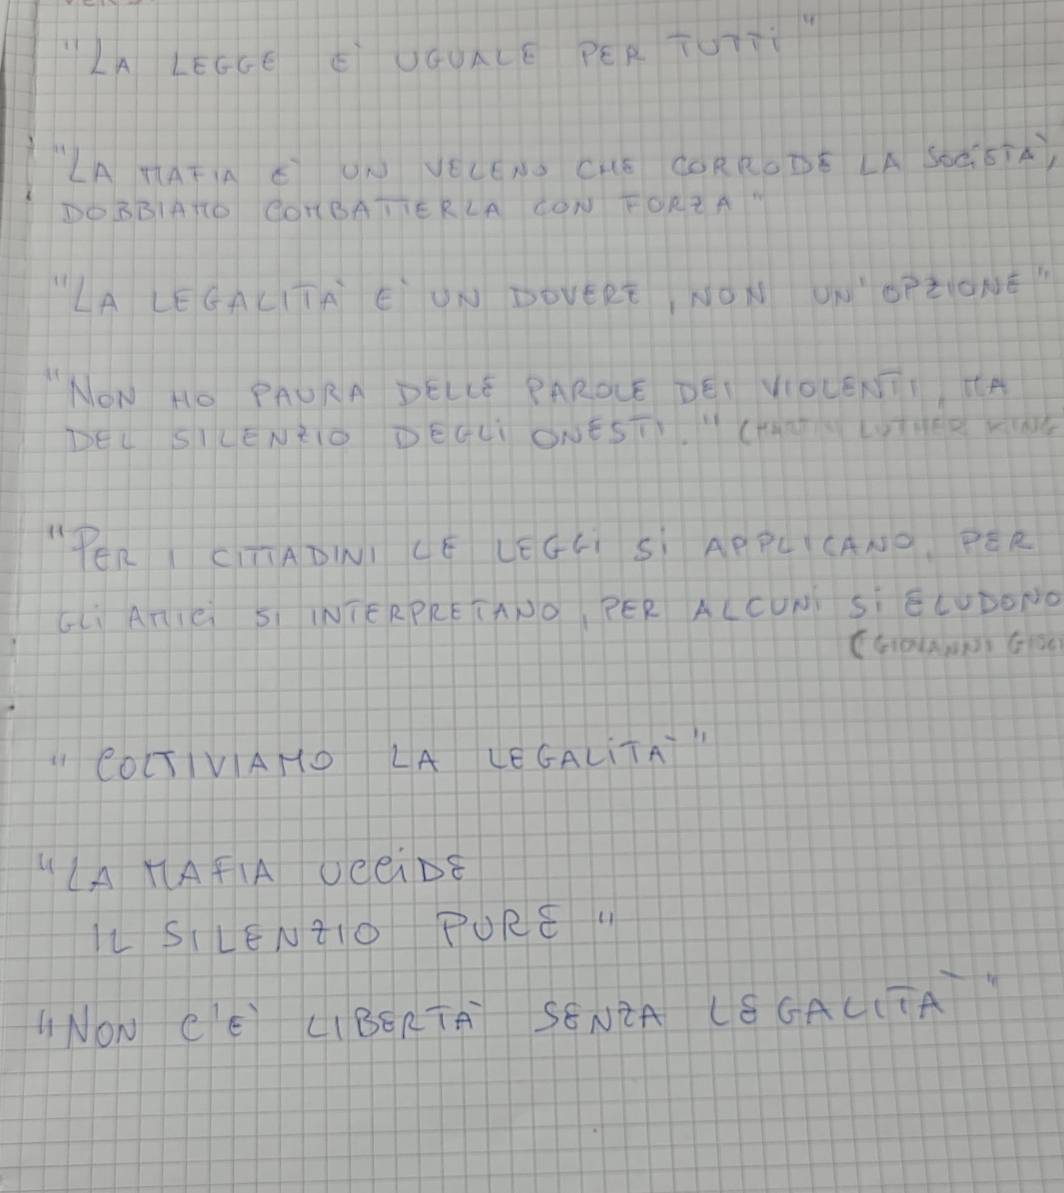 "LA LEGGE E' UGUALE PER TUTTi"
"LA MAFIA E' UN VELENO CHE CORRODE LA SOCiETA',
DOBBIAMO COMBATTERLA CON FORZA"
"LA LEGALITA' E' UN DOVERE, NON UN' OPZIONE"
"NON HO PAURA DELLE PAROLE DEI VIOLENTI, MA
DEL SILENZIO DEGLi ONESTI." (MARTIN LUTHER KING
"PER I CITTADINI LE LEGGi Si APPLICANO, PER
GLi AMICi SI INTERPRETANO, PER ALCUNi Si ELUDONO
(GIOVANNI
"COLTIVIAMO LA LEGALiTA'"
"LA MAFIA UCCiDE
IL SILENZIO PURE"
"NON C'E' LIBERTA' SENZA LEGALITA'"